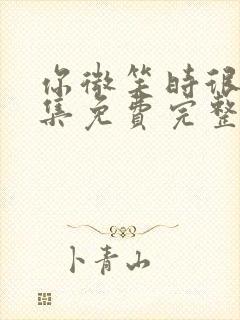 你微笑时很
集免费完整
卜青山